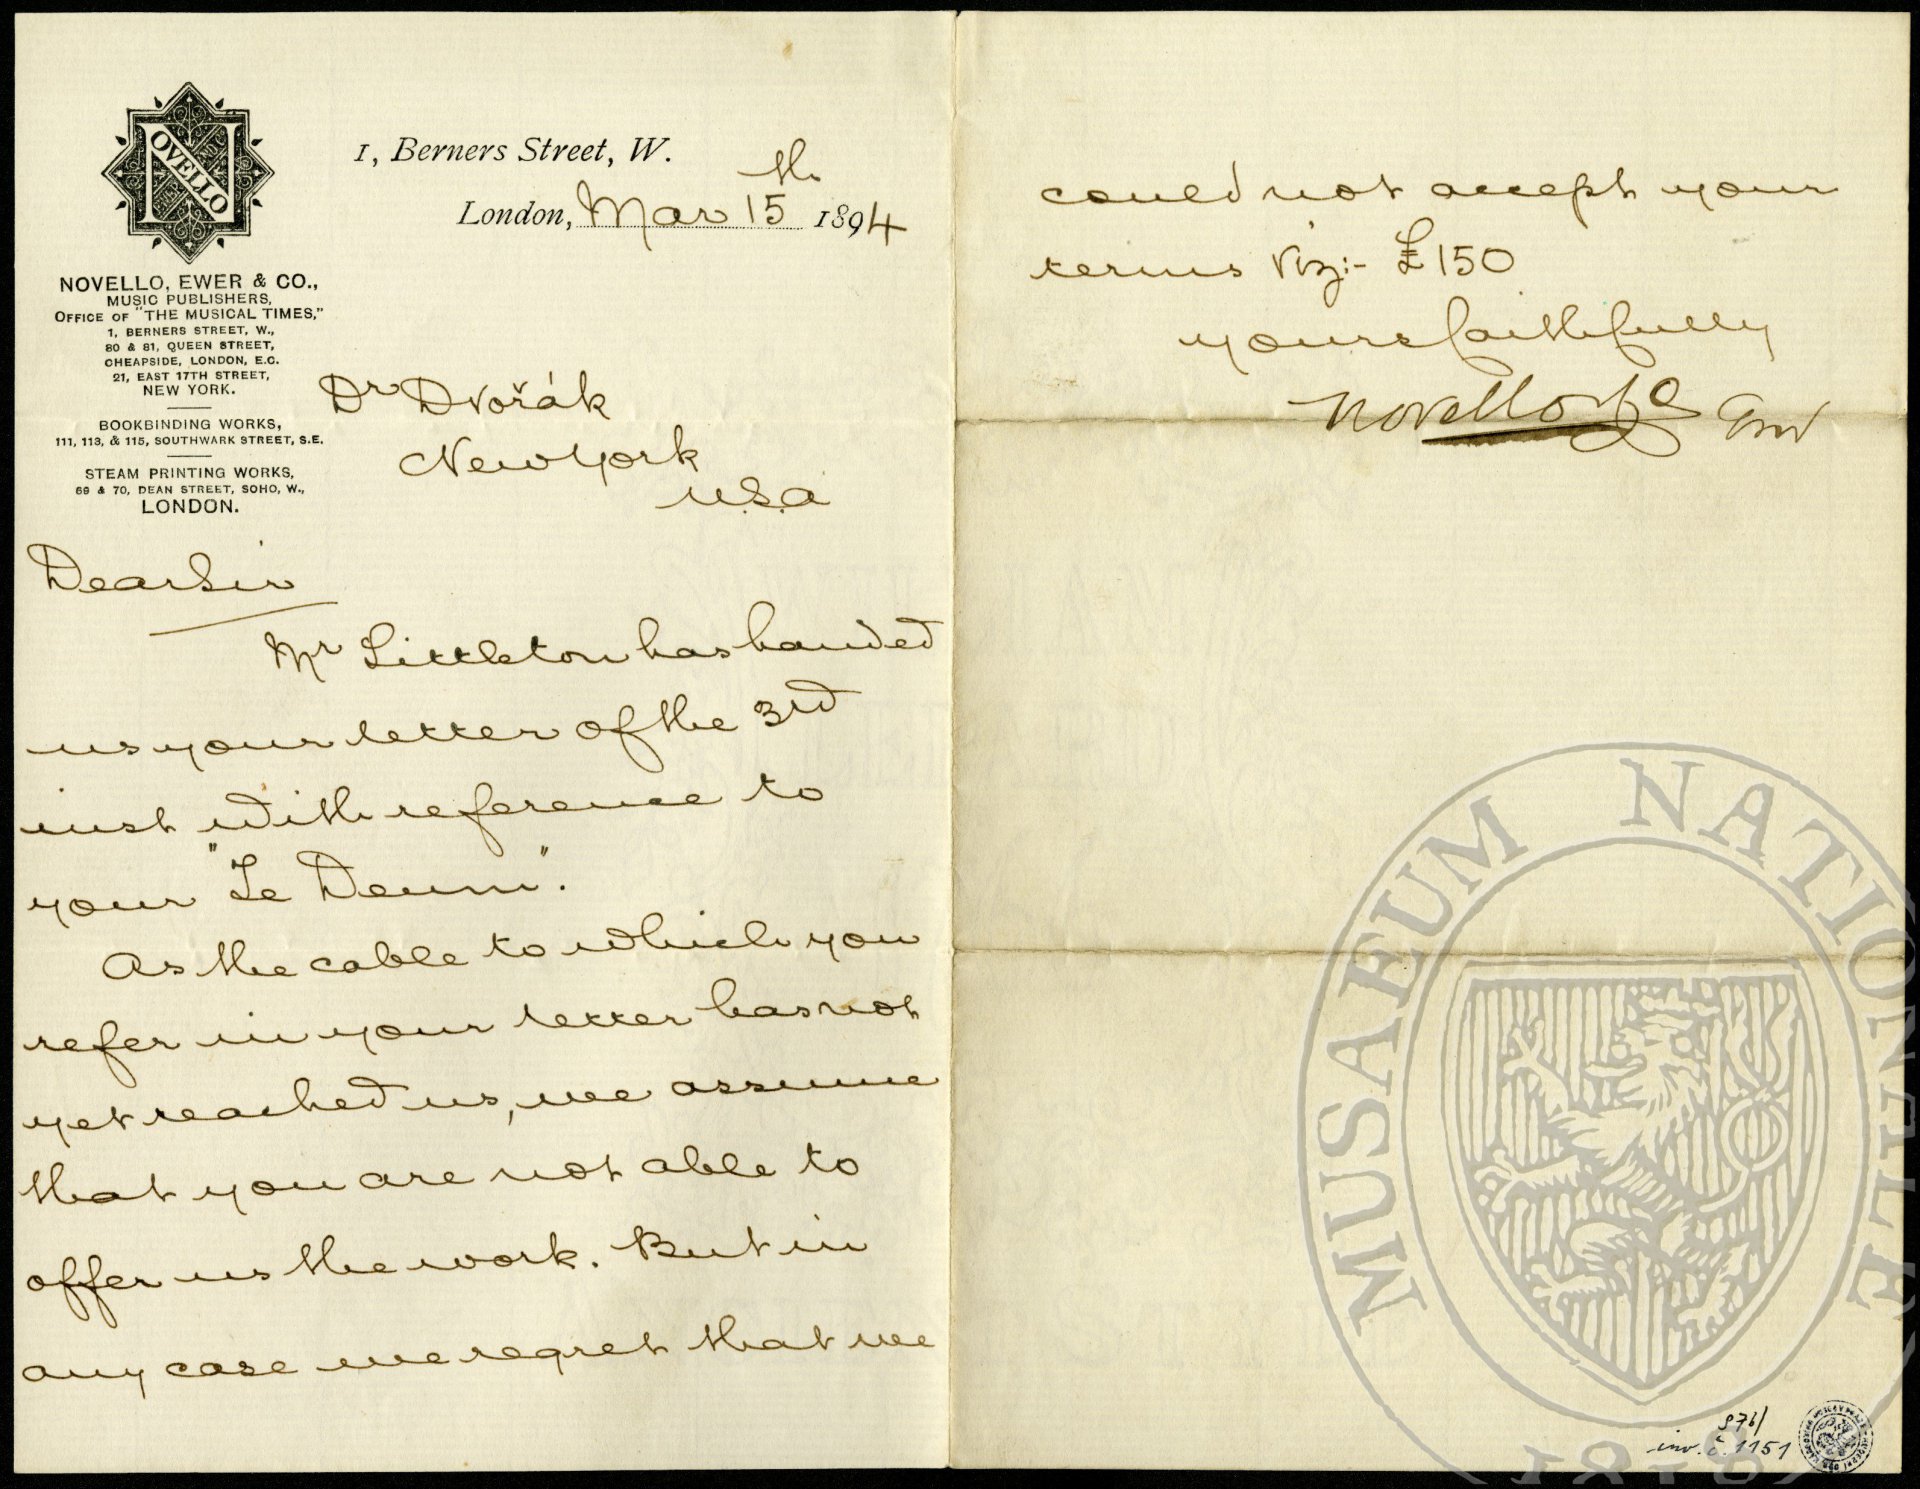 NOVELLO
NOVELLO, EWER & CO.,
MUSIC PUBLISHERS,
OFFICE OF "THE MUSICAL TIMES,"
1, BERNERS STREET, W.,
80 & 81, QUEEN STREET,
CHEAPSIDE, LONDON, E.C.
21, EAST 17TH STREET,
NEW YORK.
BOOKBINDING WORKS,
111, 113, & 115, SOUTHWARK STREET, S.E.
STEAM PRINTING WORKS,
69 & 70, DEAN STREET, SOHO, W.,
LONDON.
1, Berners Street, W.
London, Mar 15th 1894
Dr Dvořák
New York
U.S.A
Dear Sir
Mr Littleton has handed
us your letter of the 3rd
inst with reference to
your "Te Deum".
As the cable to which you
refer in your letter has not
yet reached us, we assume
that you are not able to
offer us the work. But in
any case we regret that we
could not accept your
terms viz:- £150
yours faithfully
Novello Ewer & Co
MUSAEUM NATIONALE
1818
976/
inv. č. 1151